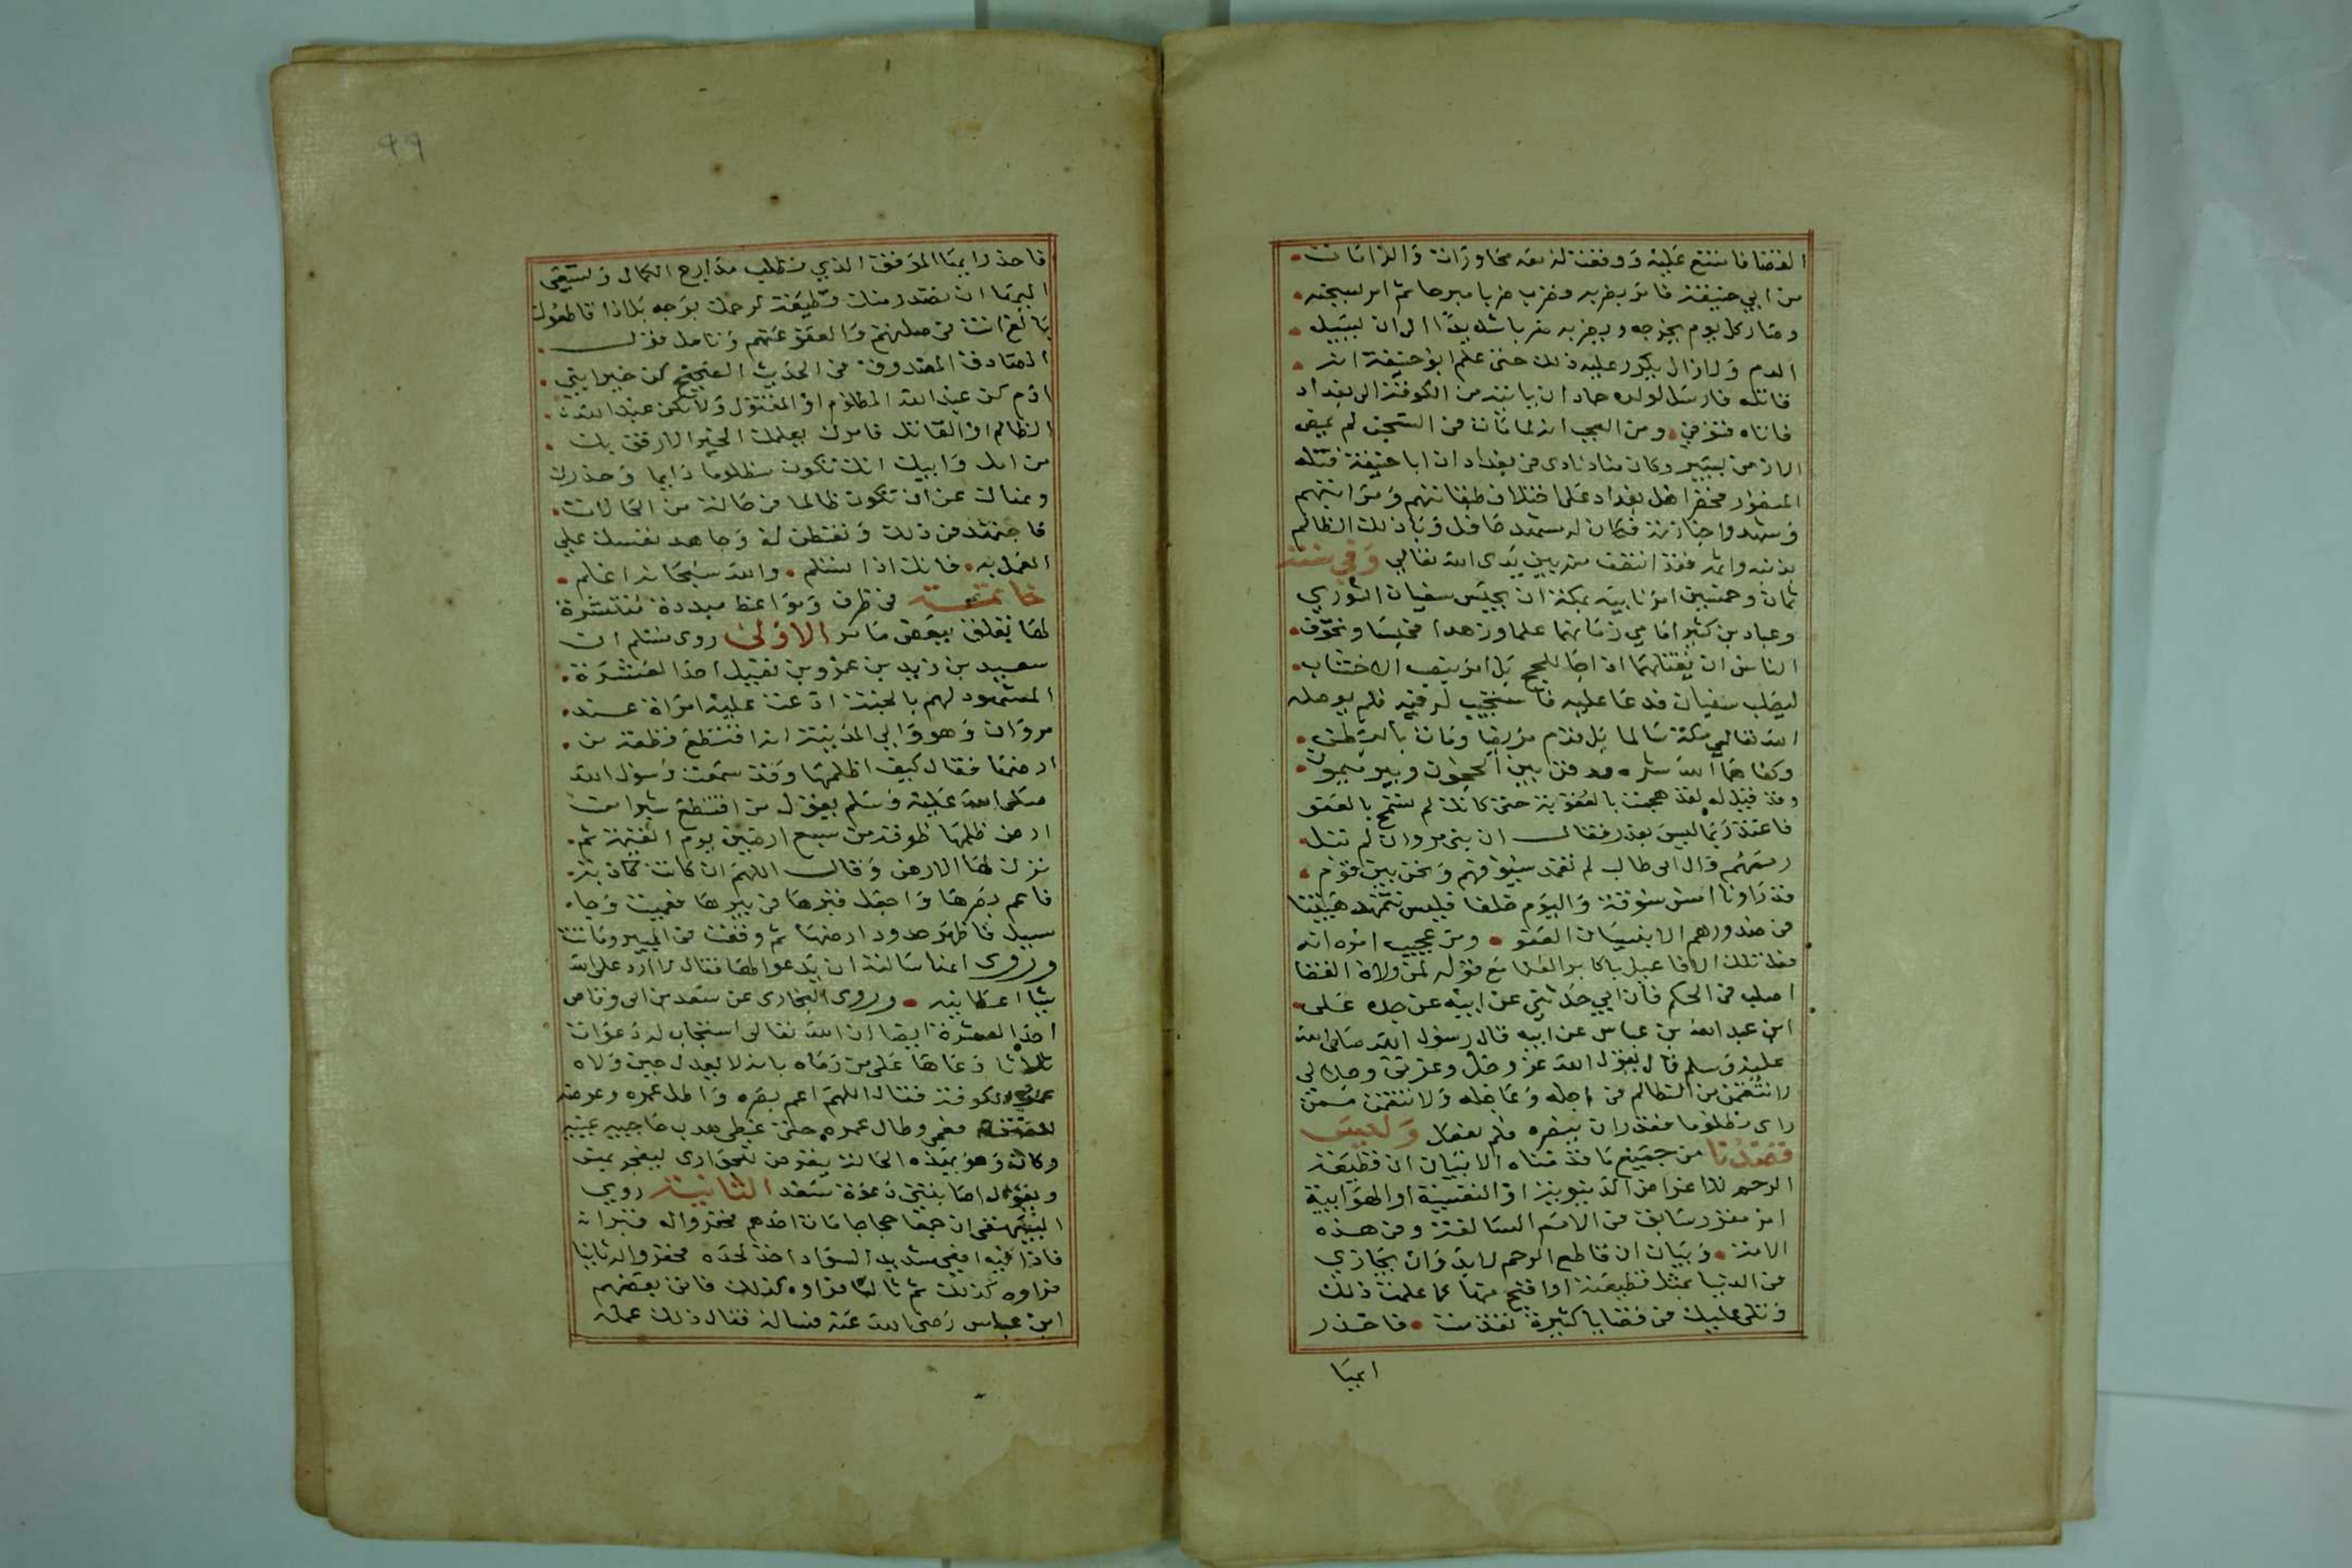 القضا فامتنع عليه ووقعت له معه محاورات والزامات
من ابي حنيفة فامر بضربه وضرب ضربا مبرحا ثم امر بسجنه
وصار كل يوم يخرجه ويضربه ضربا شديدا الى ان يسيل
الدم ولا زال يكرر عليه ذلك حتى علم ابو حنيفة انه
قاتله فارسل لولده حماد ان ياتيه من الكوفة الى بغداد
فاتاه فتوفي ومن العجب انه لما مات في السجن لم يمض
الا زمن يسير وكان مناد نادى في بغداد ان ابا حنيفة قتله
المنصور فحضر اهل بغداد على اختلاف طبقاتهم ومراتبهم
وشهدوا جنازته فكان له مشهد حافل وباء ذلك الظالم
بذنبه واثمه فقد انتقف منه بين يدي الله تعالى وفي سنة
ثمان وخمسين امر نايبه بمكة ان يحبس سفيان الثوري
وعباد بن كثير امامي زمانهما علما وزهدا فحبسا وتخوف
الناس ان يقتلهما اذا جا للحج بل امر بنصب الاخشاب
ليصلب سفيان فدعا عليه فاستجيب له فيه فلم يوصله
الله تعالى مكة سالما بل قدم مريضا ومات بالبطن
وكفاهما الله شره ودفن بين الحجون وبير ميمون
وقد قيل له لقد هجمت بالعقوبة حتى كانك لم تسمع بالعفو
فاعتذر بما ليس بعذر فقال ان بني مروان لم تبل
رممهم وال ابي طالب لم تغمد سيوفهم ونحن بين قوم
قد راونا امس سوقة واليوم خلفا فليس تتمهد هيبتنا
في صدورهم الا بنسيان العفو ومن عجيب امره انه
فعل تلك الافاعيل باكابر العلما مع قوله لمن ولاه القضا
اصلب في الحكم فان ابي حدثني عن ابيه عن جده علي
ابن عبد الله بن عباس عن ابيه قال رسول الله صلى الله
عليه وسلم قال يقول الله عز وجل وعزتي وجلالي
لانتقمن من الظالم في اجله وعاجله ولانتقمن ممن
راى مظلوما فقدر ان ينصره فلم يفعل وليس
قصدنا من جميع ما قدمناه الا بيان ان قطيعة
الرحم للاغراض الدنيوية او النفسية او الهوايية
امر مقرر سابق في الامم السالفة وفي هذه
الامة وبيان ان قاطع الرحم لابد وان يجازي
في الدنيا بمثل قطيعته او اقبح منها كما علمت ذلك
وتلى عليك في قضايا كثيرة تقدمت فاحذر
ايها
٩٩
فاحذر ايها الموفق الذي يطلب مدارج الكمال ويستعين
البرية ان تصدر منك قطيعة لرحمك بوجه بل اذا قاطعوك
بالغ انت في صلتهم والعفو عنهم وتامل قول
الصادق المصدوق في الحديث الصحيح كن خير ابني
ادم كن عبد الله المظلوم او المقتول ولا تكن عبد الله
الظالم او القاتل فامرك بعلمك الخير الارفق بك
من امك وابيك انك تكون مظلوما دايما وحذرك
ونهاك عن ان تكون ظالما في حالة من الحالات
فاجتهد في ذلك وتفطن له وجاهد نفسك على
العمل به فانك اذا تسلم والله سبحانه اعلم
خاتمة في ظرف ومواعظ مبددة منتشرة
لها تعلق ببعض ما مر الاولى روى مسلم ان
سعيد بن زيد بن عمرو بن نفيل احد العشرة
المشهود لهم بالجنة ادعت عليه امراة عند
مروان وهو والي المدينة انه اقتطع قطعة من
ارضها فقال كيف اظلمها وقد سمعت رسول الله
صلى الله عليه وسلم يقول من اقتطع شبرا من
ارض ظلمها طوقه من سبع ارضين يوم القيمة ثم
ترك لها الارض وقال اللهم ان كانت كاذبة
فاعم بصرها واجعل قبرها في بيرها فعميت وجا
سيل فاظهر حدود ارضها ثم وقعت في البير وماتت
وروى انها سالته ان يدعو لها فقال لا ارد على الله
شيا اعطانيه وروى البخاري عن سعد بن ابي وقاص
احد العشرة ايضا ان الله تعالى استجاب له دعوات
ثلاثا دعاها على من رماه بانه لا يعدل حين ولاه
عمر الكوفة فقال اللهم اعم بصره واطل عمره وعرضه
للفتنة فعمي وطال عمره حتى غطى هدب حاجبيه عينيه
وكان وهو بهذه الحالة يتعرض للجواري ليفجر بهن
ويقول اصابتني دعوة سعد الثانية روى
البيهقي ان جمعا حجاجا مات احدهم فحفروا له قبرا
فاذا فيه افعى شديد السواد اخذ لحده فحفروا له ثانيا
فراوه كذلك ثم ثالثا فراوه كذلك فاتى بعضهم
ابن عباس رضي الله عنه فساله فقال ذلك عمله